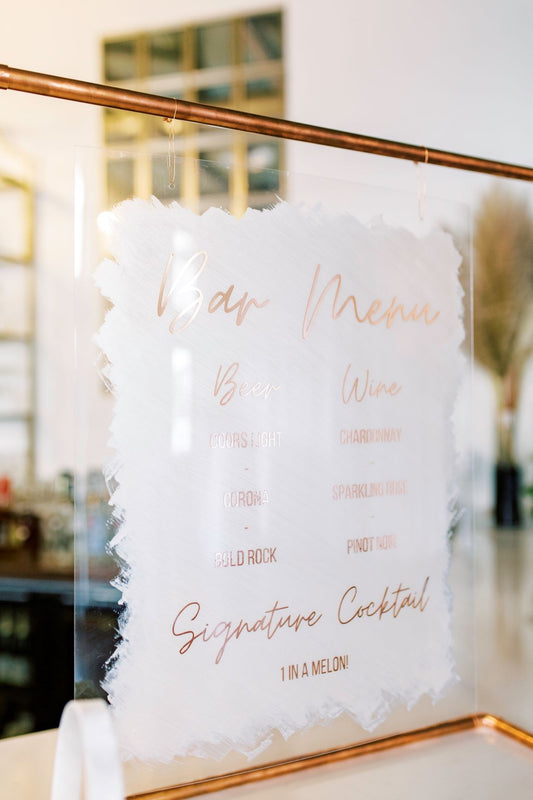 Bar Menu
Beer
COORS LIGHT
-
CORONA
-
BOLD ROCK
Wine
CHARDONNAY
-
SPARKLING ROSÉ
-
PINOT NOIR
Signature Cocktail
1 IN A MELON!